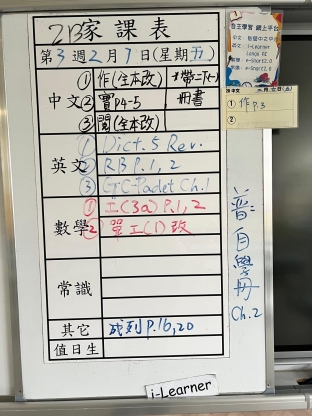 2B家課表
第3週2月7日(星期五)
中文
①作(全本改)
*帶二下(一)
②寶P4-5
冊書
③閱(全本改)
英文
① Dict. 5 Rev.
② RB P.1, 2
③ GC-Padlet Ch.1
數學
① 工(3a) P.1, 2
② 單工(1)改
常識
其它
成列 P.16, 20
值日生
i-Learner
自主學習 網上平台
中文:智愛中文平台
英文:i-Learner
① 作 P.3
②
普:自學冊
Ch.2